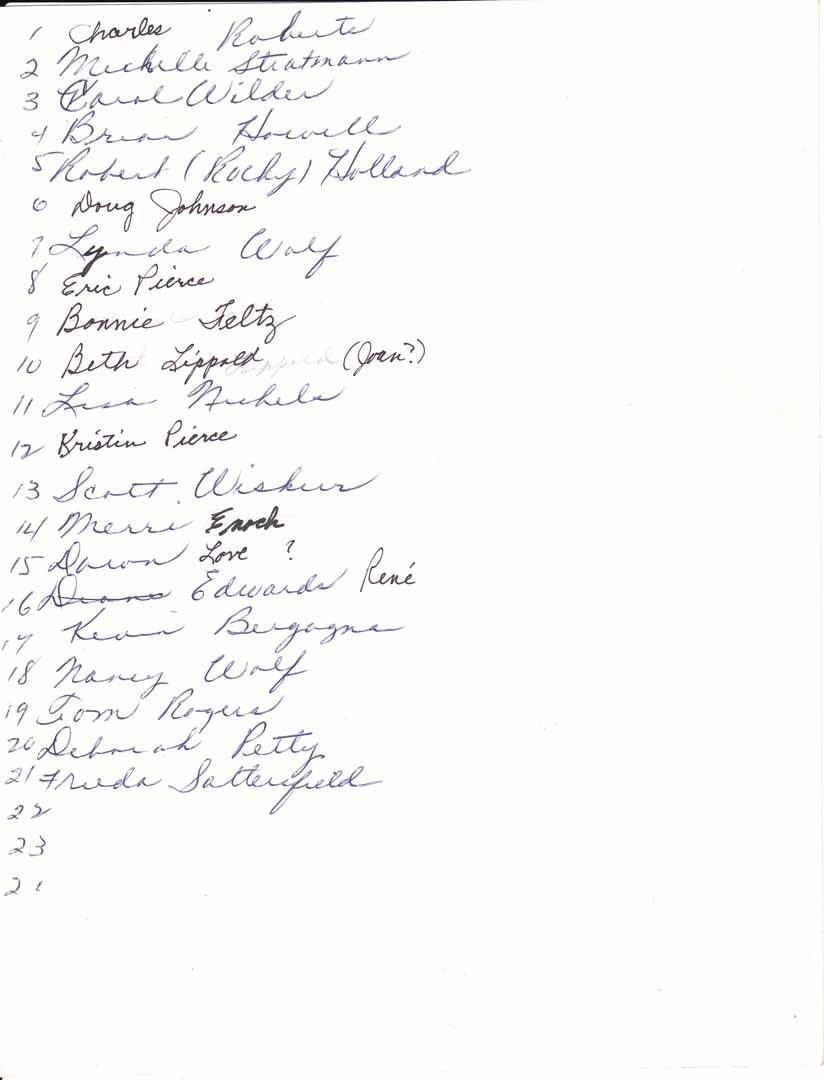 1 Charles Roberts
2 Michelle Stratmann
3 Carol Wilder
4 Brian Howell
5 Robert (Rocky) Holland
6 Doug Johnson
7 Lynda Wolf
8 Eric Pierce
9 Bonnie Feltz
10 Beth Lippold (Joan?)
11 Lisa Nichels
12 Kristin Pierce
13 Scott Wisher
14 Merri Enoch
15 Dawn Love ?
16 Diane Edwards René
17 Kevin Bergagna
18 Nancy Wolf
19 Tom Rogers
20 Deborah Petty
21 Freda Satterfield
22
23
2